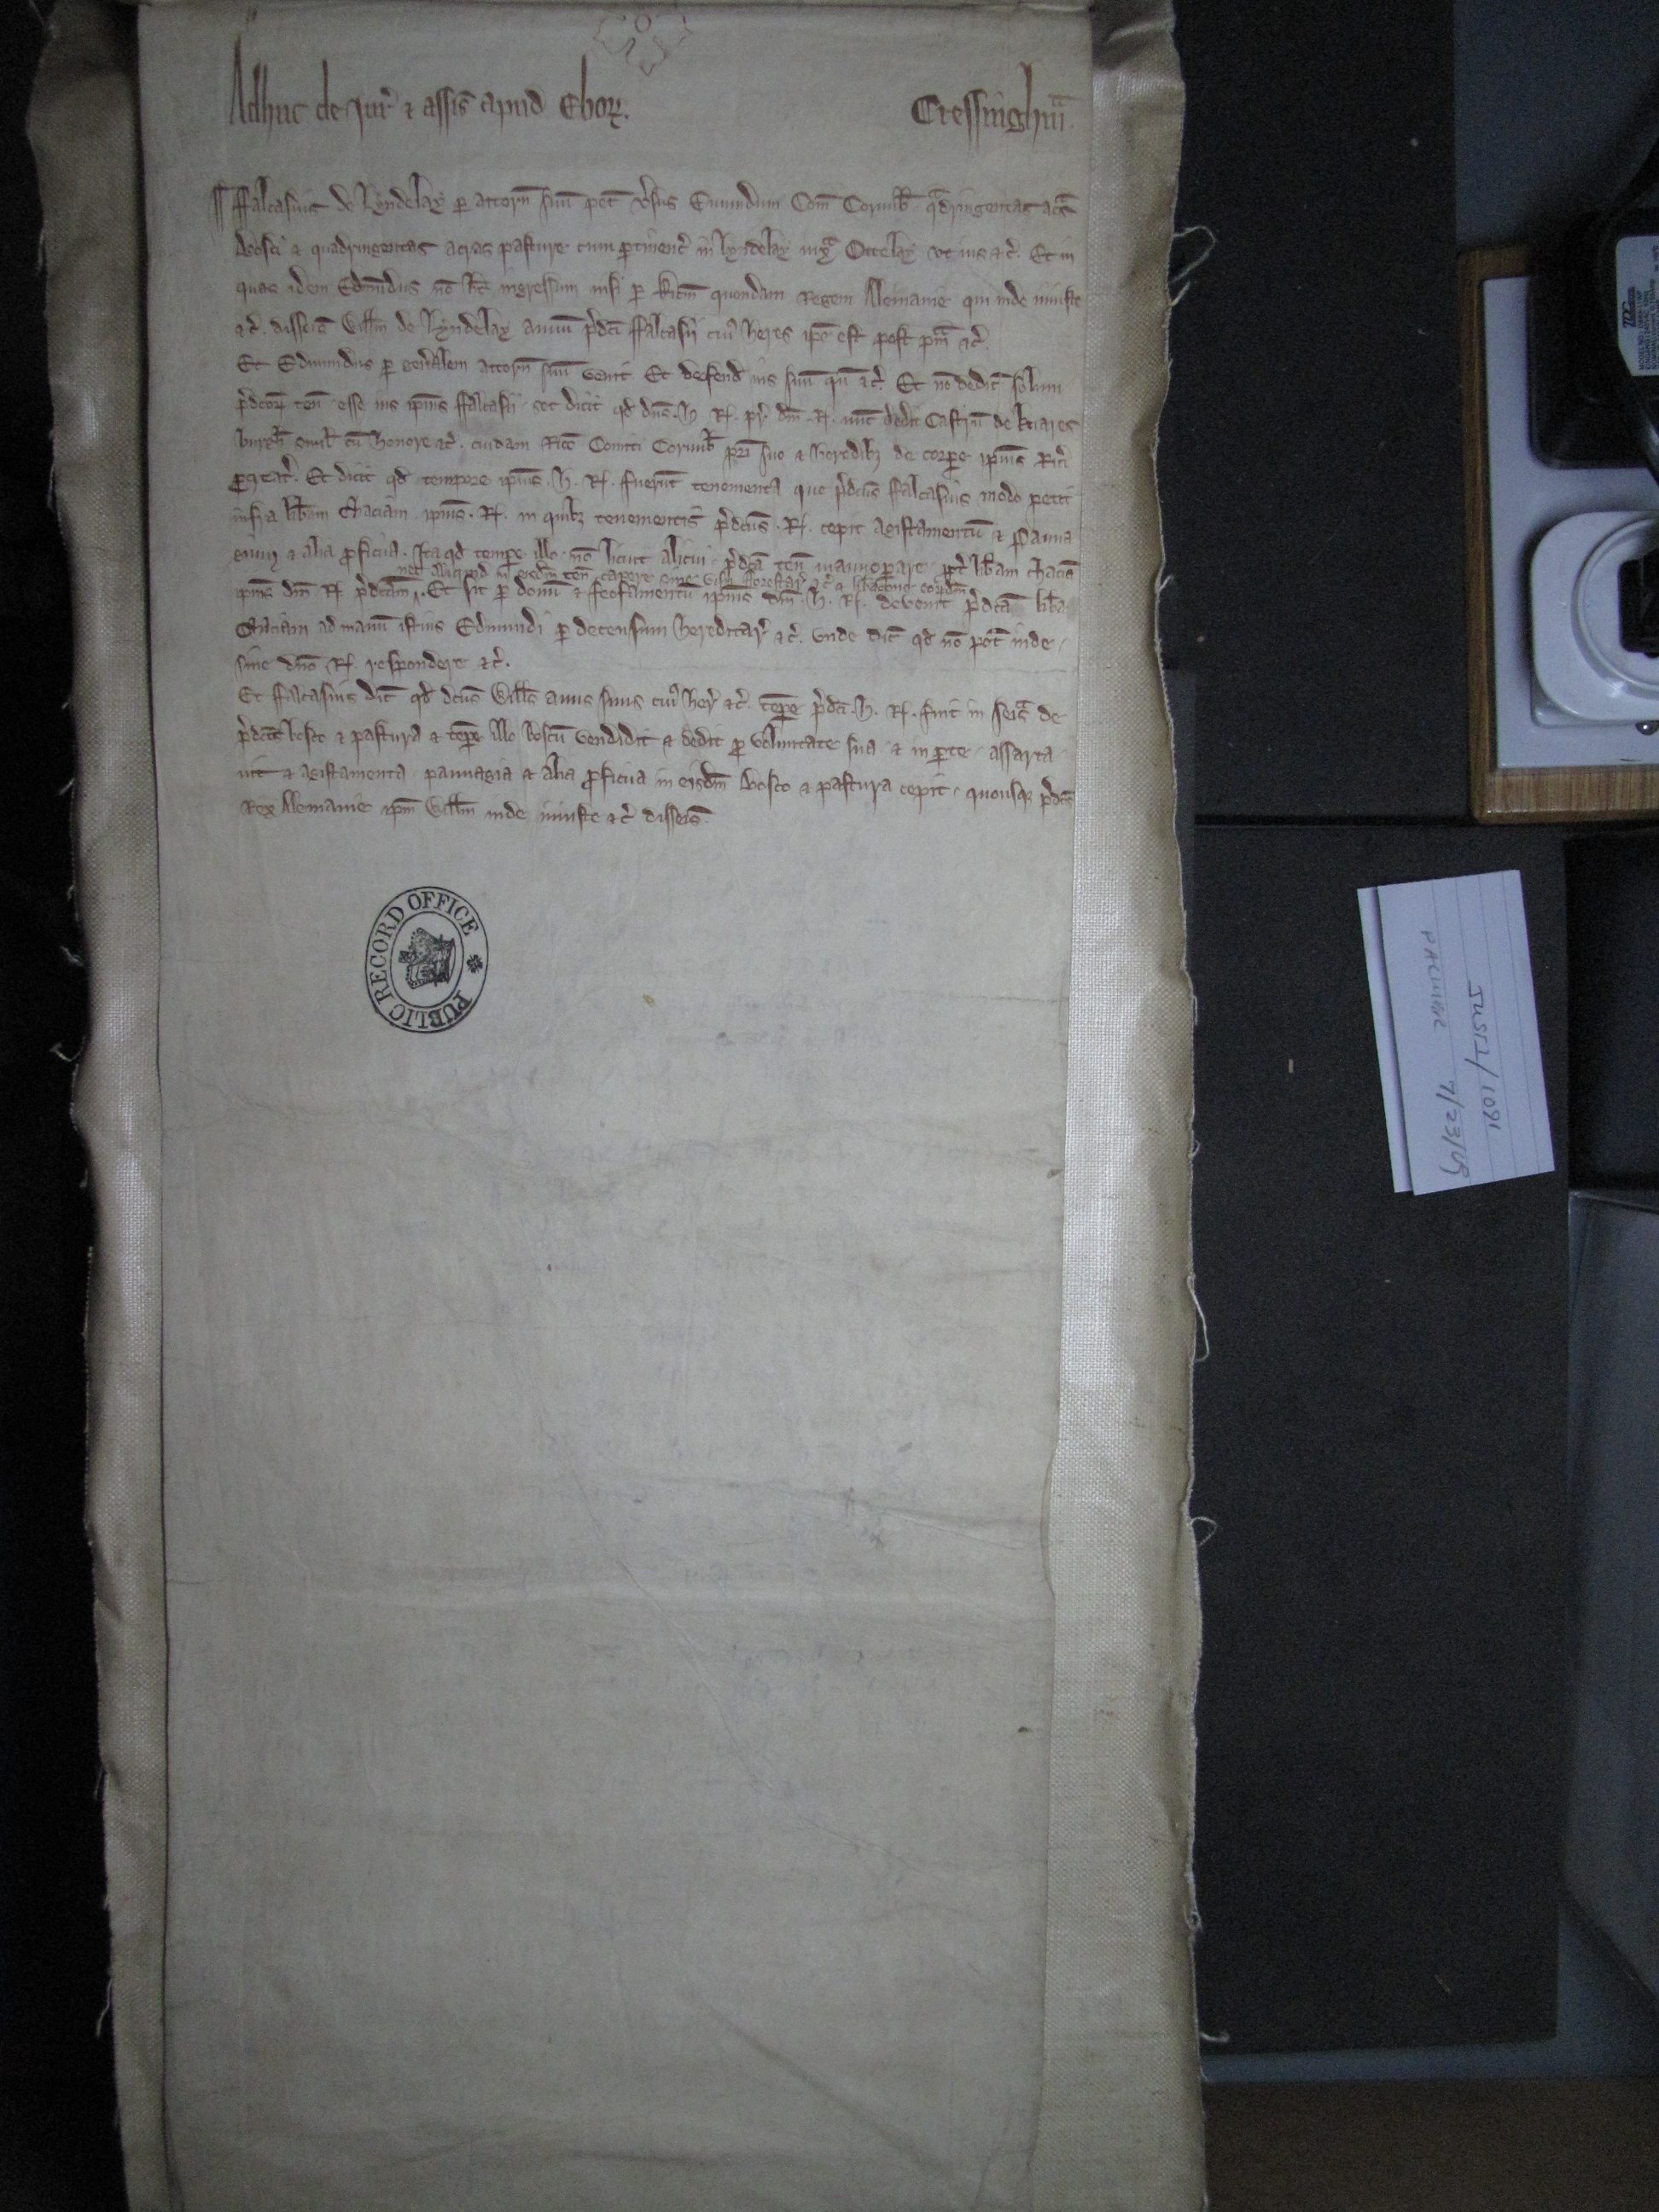 Adhuc de Jur̃ ⁊ assis̃ apud Ebor̃. Cressinghm̃
ffalcasius de Lyndelay p̱ attorñ suũ pet̃ ṽsus Emundum Com̃ Cornub̃ qᵃdringentas acr̃
bosci ⁊ quadringentas acras pasture cum ꝑtinenc̃ in lyndelay iuxᵃ Ottelay vt ius ⁊c̃. Et in
quas idem Edm̃dus nõ h̃t ingressum nisi ꝑ Ric̃m quondam Regem Alemannie qui inde iniuste
⁊c̃. disseis̃ Willm̃ de lyndelay auum p̃dc̃i ffalcasii cuiꝰ heres ip̃e est post pm̃ã ⁊c̃.
Et Edmundus ꝑ gen̾alem attorñ suũ venit. Et defend̃ ius suũ qñ ⁊c̃. Et nõ dedic̃ solum
p̃dc̃oꝝ teñ esse ius ip̃ius ffalcasii set dicit qd̃ dñs .H. Rˣ. pr̃ dñi .R. nũc dedit Castrũ de knares
burgh̃ simul cũ honore ⁊c̃. cuidam Ric̃o Comiti Cornub̃ fr̃i suo ⁊ heredibꝫ de corꝑe ip̃ius Ric̃i
ꝓcreat̃. Et dicit qd̃ tempore ip̃ius .H. Rˣ. fuerũt tenementa que p̃dc̃us ffalcasius modo petit
infra lib̃am Chaciam ip̃ius .Rˣ. in quibꝫ tenementis p̃dc̃us .Rˣ. cepit agistamentũ ⁊ panna
gium ⁊ alia ꝓficua. Ita qd̃ tempe illo nõ licuit alicui p̃dc̃a teñ mannoperare ꝓpt̃ lib̃am chaciã
nec aliquid in eisdm̃ teñ capere sine visu fforestar̃ ⁊c̃ ⁊ lib̃ac̃one eoꝝdm̃
ip̃ius dñi .Rˣ. p̃dc̃am. Et sic ꝑ donũ ⁊ feofamentũ ip̃ius dñi .H. Rˣ. devenit p̃dc̃a lib̃a
Chaciam ad manũ istius Edmundi ꝑ decensum hereditar̃ ⁊c̃. vnde dic̃ qd̃ nõ pot̃ inde
sine dño .Rˣ. respondere ⁊c̃.
Et ffalcasius dic̃ qd̃ dc̃us Wills̃ auus suus cuiꝰ her̃ ⁊c̃. tẽpe p̃dc̃i .H. Rˣ. fuit in seisᵃ de
p̃dc̃is bosco ⁊ pastura ⁊ tẽpe illo boscũ vendidit ⁊ dedit ꝓ voluntate sua ⁊ in ꝑte assarta
uit ⁊ agistamenta pannagia ⁊ alia ꝓficua in eisdm̃ bosco ⁊ pastura cepit quousqꝫ p̃dc̃s
Rex Alemannie ip̃m Willm̃ inde iniuste ⁊c̃ disseis̃.
PUBLIC RECORD OFFICE
JUST1/1091